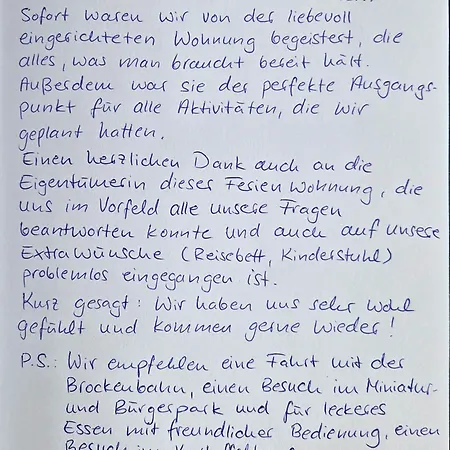 Sofort waren wir von der liebevoll
eingerichteten Wohnung begeistert, die
alles, was man braucht bereit hält.
Außerdem war sie der perfekte Ausgangs-
punkt für alle Aktivitäten, die wir
geplant hatten.
Einen herzlichen Dank auch an die
Eigentümerin dieser Ferienwohnung, die
uns im Vorfeld alle unsere Fragen
beantworten konnte und auch auf unsere
Extrawünsche (Reisebett, Kinderstuhl)
problemlos eingegangen ist.
Kurz gesagt: Wir haben uns sehr wohl
gefühlt und kommen gerne wieder!
P.S.: Wir empfehlen eine Fahrt mit der
Brockenbahn, einen Besuch im Miniatur-
und Bürgerpark und für leckeres
Essen mit freundlicher Bedienung, einen
Besuch im